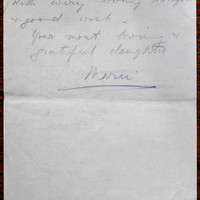 With every loving thought
& good wish -
Your most loving &
grateful daughter